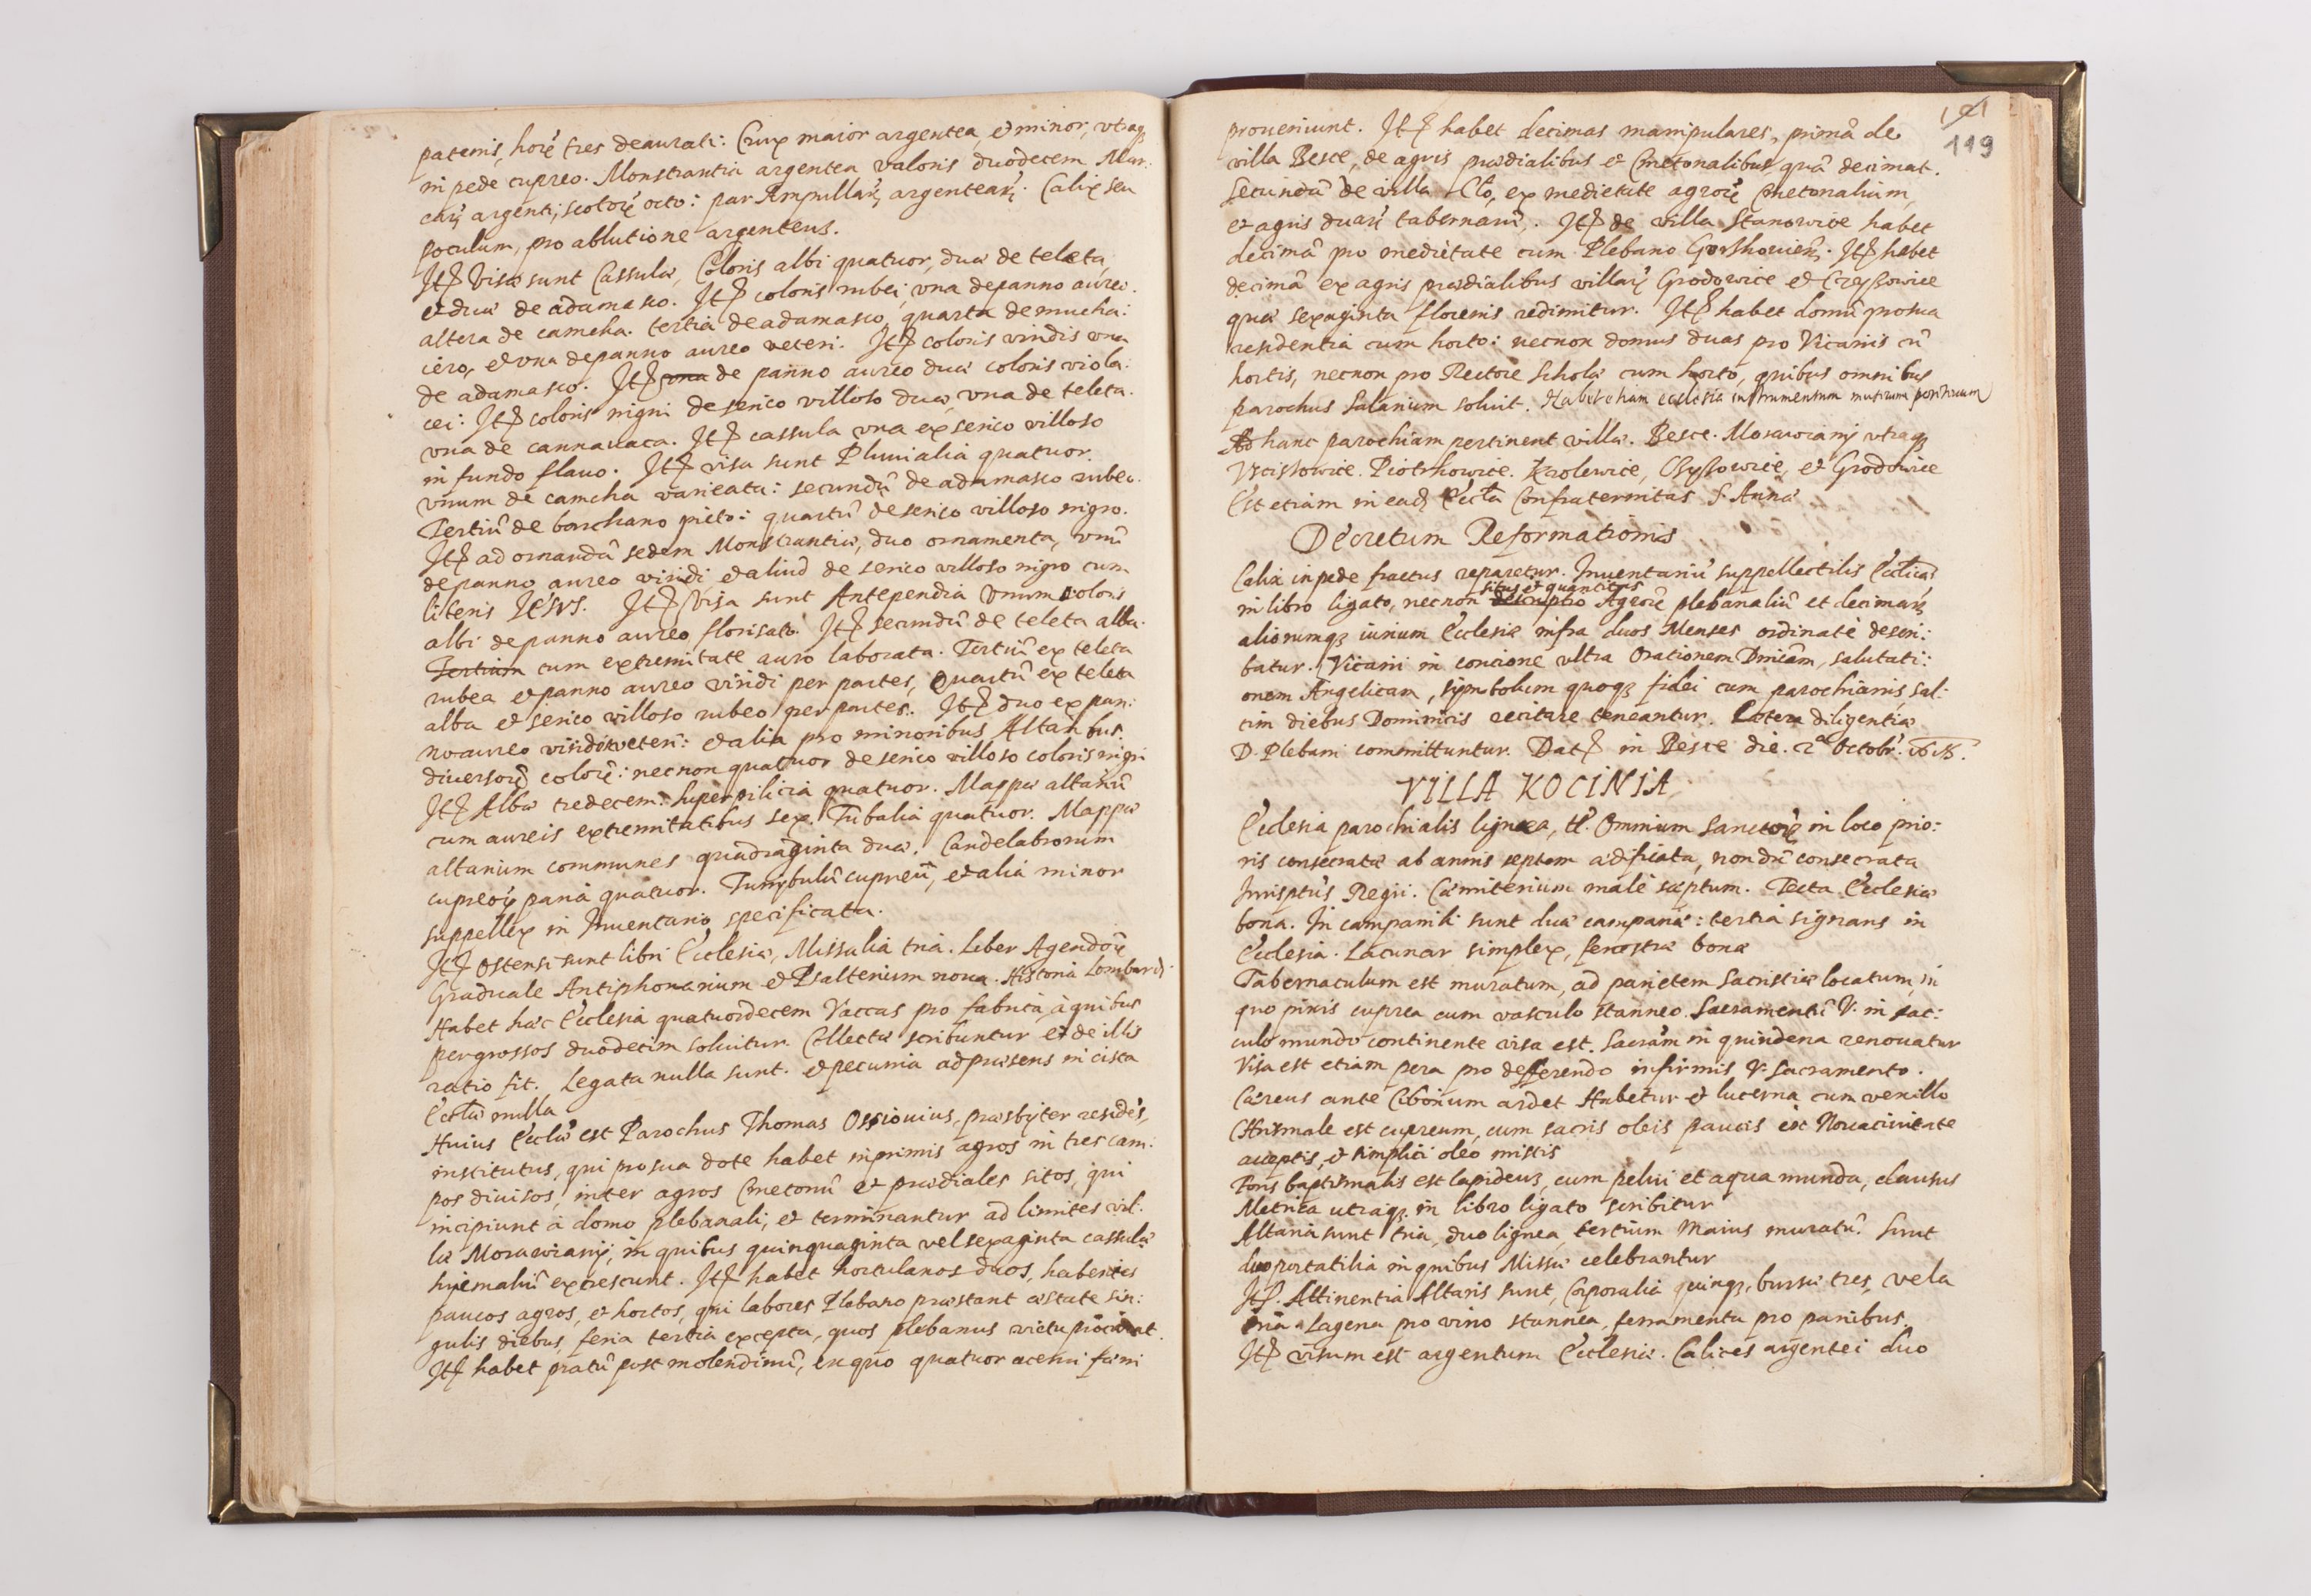 patenis, horũ tres deaurati: Crux maior argentea, et minor, vtraq
in pede cupreo. Monstrantia argentea valoris duodecem Mar:
carũ argenti, scotorũ octo: par Ampullarũ argentearũ. Calix seu
poculum, pro ablutione argenteus.
Itẽ Visæ sunt Cassulæ, Coloris albi quatuor, duæ de teleta,
et duæ de adamasco. Itẽ coloris rubei, vna de panno aureo.
altera de camcha. tertia de adamasco, quarta de mucha:
iero, et vna de panno aureo veteri. Itẽ coloris viridis vna
de adamasco. Itẽ vna de panno aureo duæ coloris viola:
cei: Itẽ coloris nigri de serico villoso duæ, vna de teleta.
vna de cannauaca. Itẽ cassula vna ex serico villoso
in fundo flauo. Itẽ visa sunt Pluuialia quatuor.
vnum de camcha varieata: secundũ de adamasco rubeo.
Tertiũ de borchano picto: quartũ de serico villoso nigro.
Itẽ ad ornandũ sedem Monstrantiæ, duo ornamenta, vnũ
de panno aureo viridi et aliud de serico villoso nigro cum
literis IESVS. Itẽ Visa sunt Antependia Vnum coloris
albi de panno aureo florisato. Itẽ secundũ de teleta alba.
Tertium cum extremitate auro laborata. Tertiũ ex teleta
rubea et panno aureo viridi per partes, Quartũ ex teleta
alba et serico villoso rubeo per partes. Itẽ duo ex pan:
no aureo viridi veteri: et alia pro minoribus Altaribus.
diuersorũ colorũ: necnon quatuor de serico villoso coloris nigri
Itẽ Albæ tredecem. Superpilicia quatuor. Mappæ altariũ
cum aureis extremitatibus sex. Tubalia quatuor. Mappæ
altarium communes quadraginta duæ. Candelabrorum
cupreorũ paria quatuor. Turribulũ cupreũ, et alia minor
suppellex in Inuentario specificata.
Itẽ Ostensi sunt libri Ecclesiæ, Missalia tria. Liber Agendorũ
Graduale Antiphonarium et Psalterium noua. Historia Lombard:
Habet hæc Ecclesia quatuordecem Vaccas pro fabrica, à quibus
per grossos duodecim soluitur. Collectæ scribuntur et de illis
ratio fit. Legata nulla sunt. et pecunia ad præsens in cista
Ecclæ nulla
Huius Ecclæ est Parochus Thomas Ossiouius, præsbyter residẽs,
institutus, qui pro sua dote habet inprimis agros in tres cam:
pos diuisos, inter agros Cmetonũ et prædiales sitos, qui
incipiunt à domo plebanali, et terminantur ad limites vil:
læ Morawiany, in quibus quinquaginta vel sexaginta cassulæ
hyemaliũ excrescunt. Itẽ habet hortulanos duos, habentes
paucos agros, et hortos, qui labores Plebano præstant æstate sin:
gulis diebus, feria tertia excepta, quos plebanus victu procurat.
Itẽ habet pratũ post molendinũ, ex quo quatuor acerui fæni
121
119
proueniunt. Itẽ habet decimas manipulares, primã de
villa Besce, de agris prædialibus et Cmetonalibus, quã decimat.
Secundã de villa Cło, ex medietate agrorũ Cmetonalium,
et agris duarũ tabernarũ. Itẽ de villa Stanowice habet
decimã pro medietate cum Plebano Gorzkouieñ. Itẽ habet
decimã ex agris prædialibus villarũ Grodowice et Czyszowice
quæ sexaginta florenis redimitur. Itẽ habet domũ pro sua
residentia cum horto: necnon domus duas pro Vicariis cũ
hortis, necnon pro Rectore Scholæ cum horto, quibus omnibus
parochus salarium soluit. Habet etiam ecclesia instrumentum musicum positiuum
Ad hanc parochiam pertinent villæ. Besce. Morawiany vtraq
Vcisskowice. Piotrkowice. Krolewice, Czyszowice, et Grodowice
Est etiam in eadẽ Eccla Confraternitas S. Annæ
Decretum Reformationis
Calix in pede fractus reparetur. Inuentariũ suppellectilis Ecclicæ
situs et quantitas
in libro ligato, necnon descriptio Agrorũ plebanaliũ et decimarũ
aliorumq iurium Ecclesiæ infra duos Menses ordinatè descri:
batur. Vicarii in concione vltra Orationem Dnicãm, salutati:
onem Angelicam, symbolum quoq fidei cum parochianis, sal:
tim diebus Dominicis recitare teneantur. Cætera diligentiæ
D. Plebani committuntur. Datẽ in Besce die. 2a Octobr.
VILLA KOCINIA
Ecclesia parochialis lignea, tt. Omnium Sanctorũ in loco prio:
ris consecratæ ab annis septem ædificata, nondũ consecrata
Jurisptus Regii. Cæmiterium malè sæptum. Tecta Ecclesiæ
bona. In campanili sunt duæ campanæ: tertia signans in
Ecclesia. Lacunar simplex, fenestræ bonæ
Tabernaculum est muratum, ad parietem Sacristiæ locatum, in
quo pixis cuprea cum vasculo stanneo Sacramentũ V. in sac:
culo mundo continente visa est. Sacrãm in quindena renouatur
Visa est etiam pera pro defferendo infirmis V. Sacramento.
Cæreus ante Ciborium ardet Habetur et lucerna cum vexillo
Chrismale est cupreum, cum sacris oleis paucis ex Nouaciuitate
acceptis, et simplici oleo mistis
Fons baptismalis est lapideus, cum pelui et aqua munda, clausus
Metrica utraq in libro ligato scribitur
Altaria sunt tria, duo lignea, tertium Maius muratũ. Sunt
duo portatilia in quibus Missæ celebrantur
Itẽ. Attinentia Altaris sunt, Corporalia quinq, bursæ tres, vela
tria. Lagena pro vino stannea, ferramenta pro panibus.
Itẽ visum est argentum Ecclesiæ. Calices argentei duo